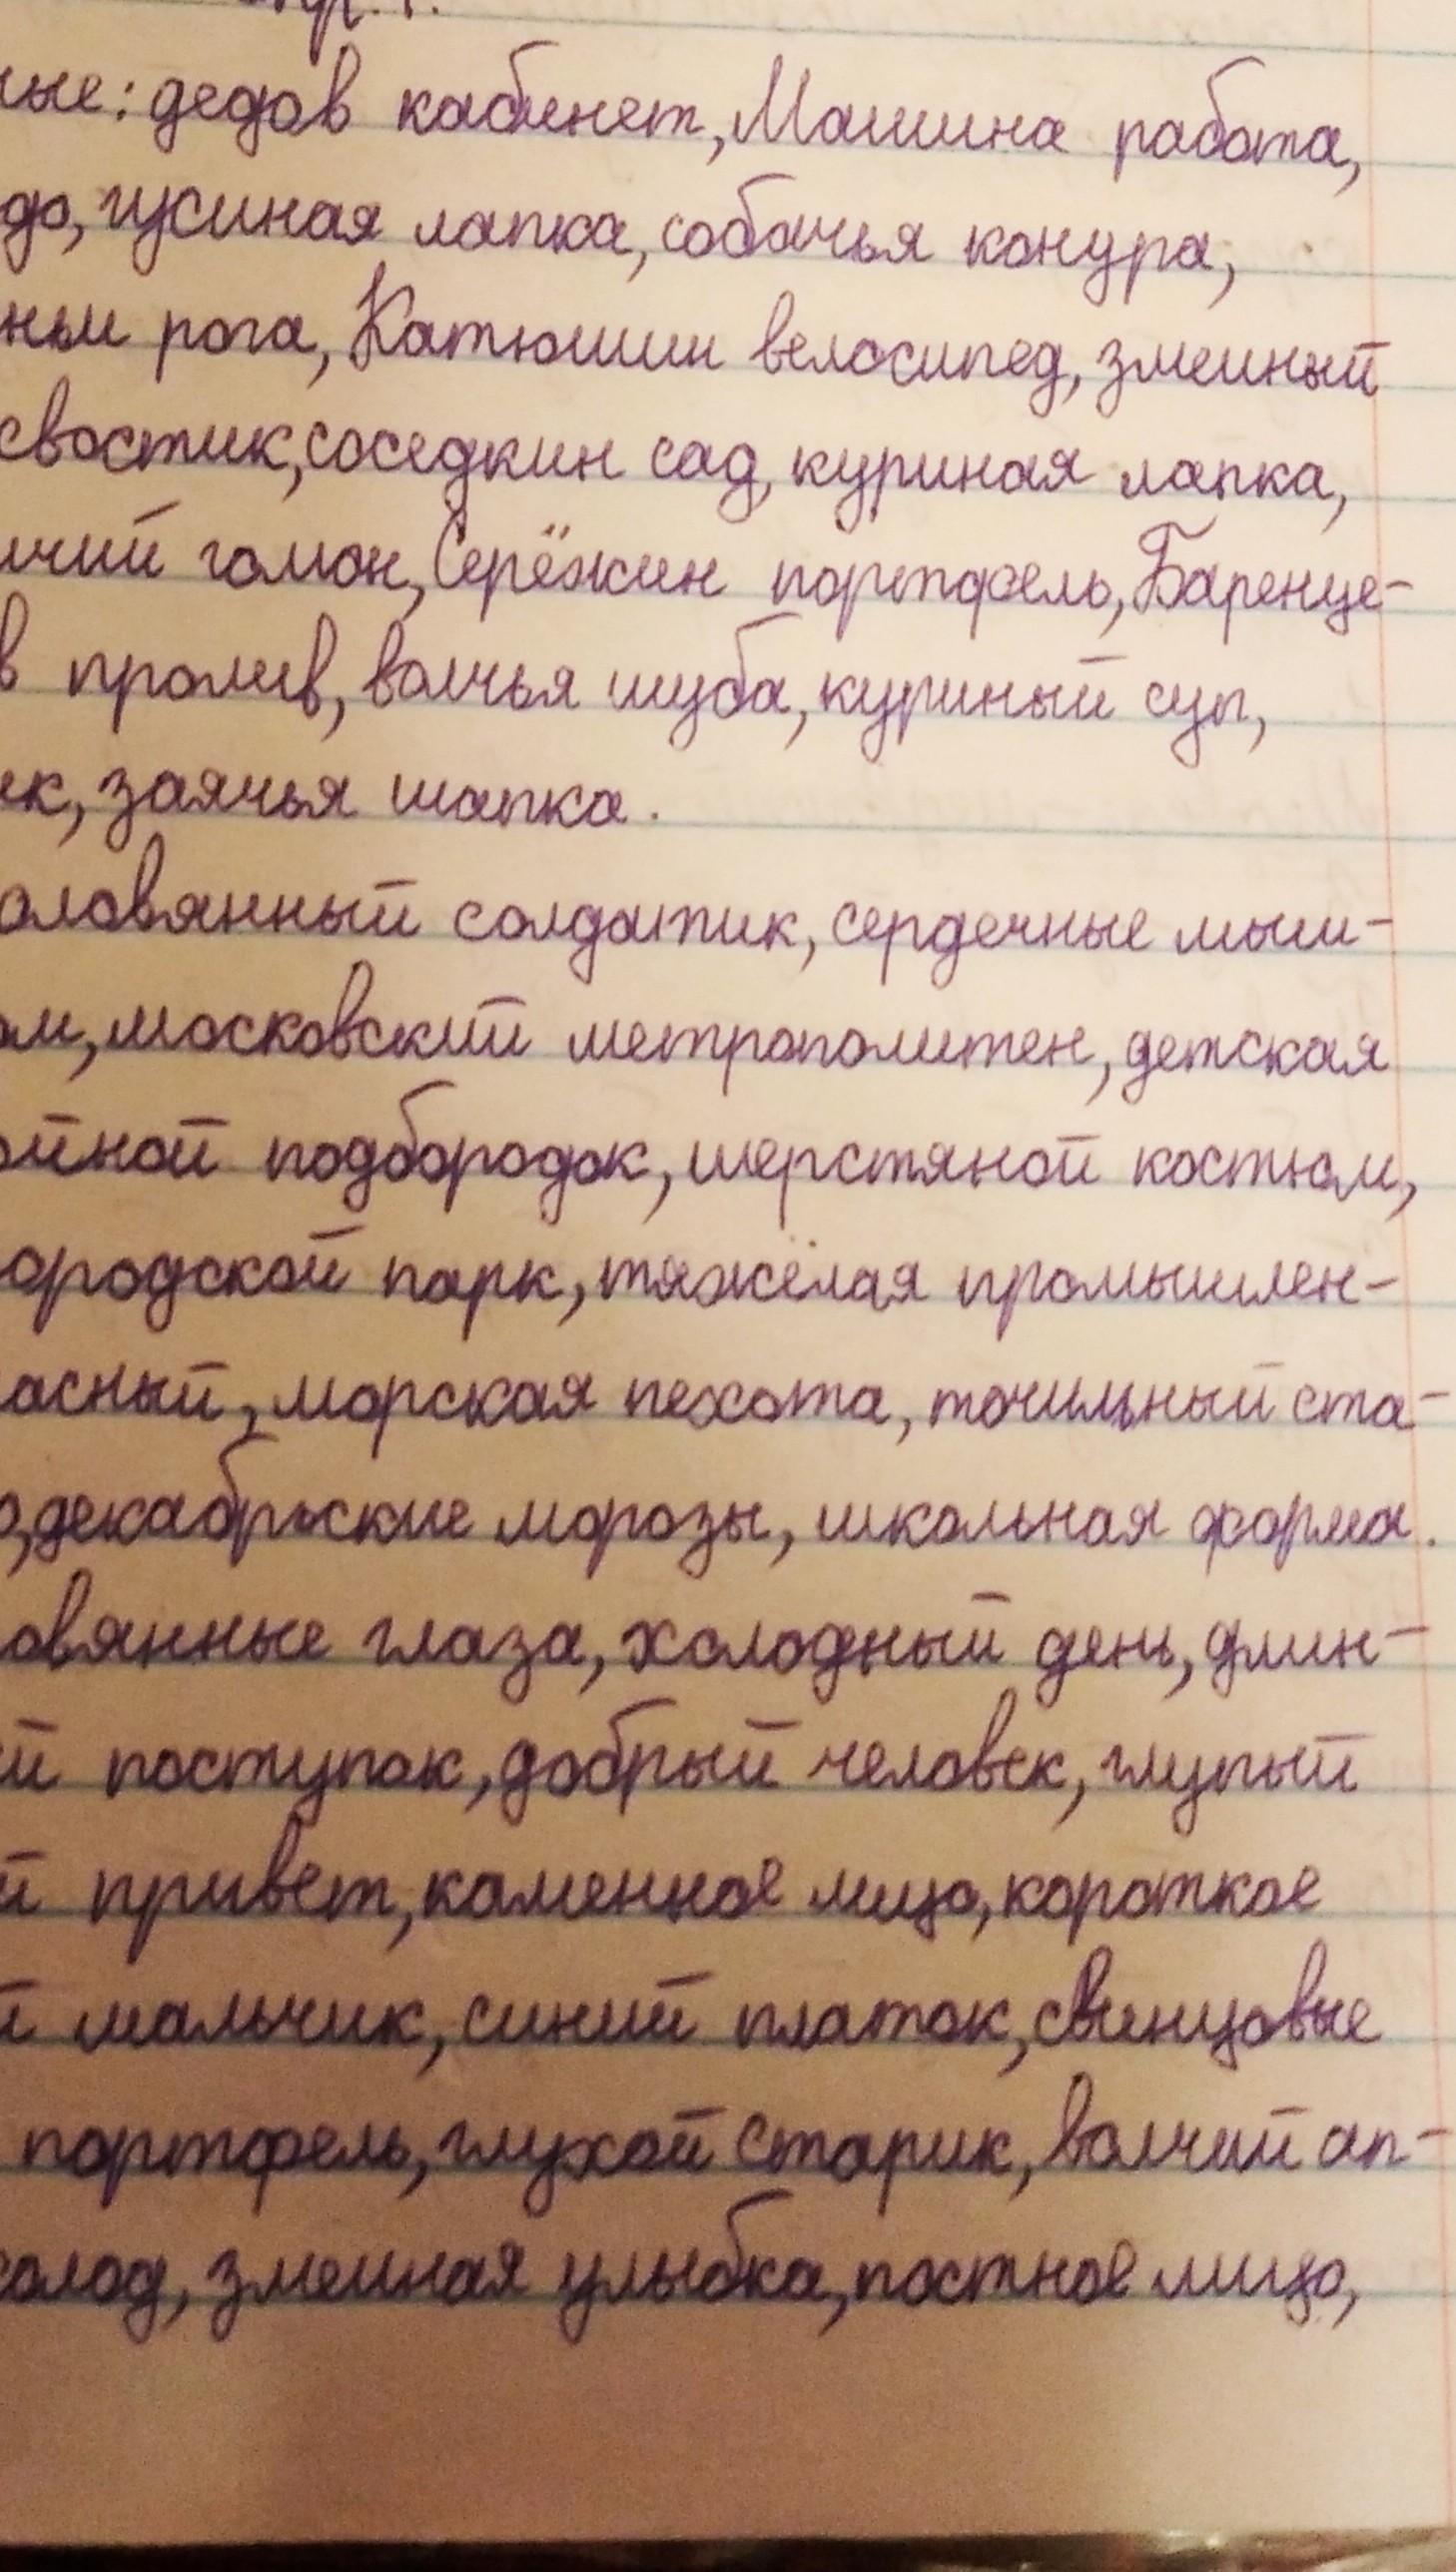 ные: дедов кабинет, Машина работа,
гусиная лапка, собачья конура,
рога, Катюшин велосипед, змеиный
хвостик, соседкин сад, куриная лапка,
чий гомон, Серёжин портфель, Баренце-
в пролив, волчья шуба, куриный суп,
ек, заячья шапка.
оловянный солдатик, сердечные мыш-
ом, московский метрополитен, детская
ойной подбородок, шерстяной костюм,
ородской парк, тяжёлая промышлен-
асный, морская пехота, точильный ста-
о, декабрьские морозы, школьная форма.
овянные глаза, холодный день, длин-
й поступок, добрый человек, глупый
й привет, каменное лицо, короткое
й мальчик, синий платок, свинцовые
портфель, глухой старик, волчий ап-
олод, змеиная улыбка, постное лицо,